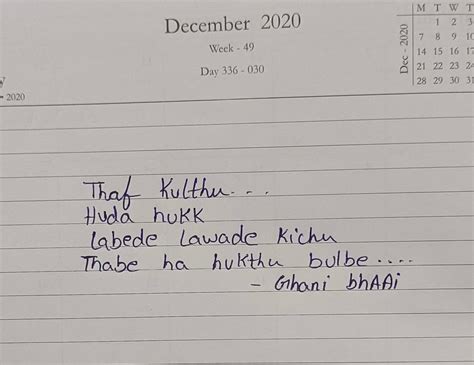 December 2020
Week - 49
Day 336 - 030
- 2020
Dec - 2020
M T W T
1 2 3
7 8 9 10
14 15 16 17
21 22 23 24
28 29 30 31
Thaf Kulthu...
Huda hukk
Labede Lawade Kichu
Thabe ha hukthu bulbe ....
- Ghani bhAAi